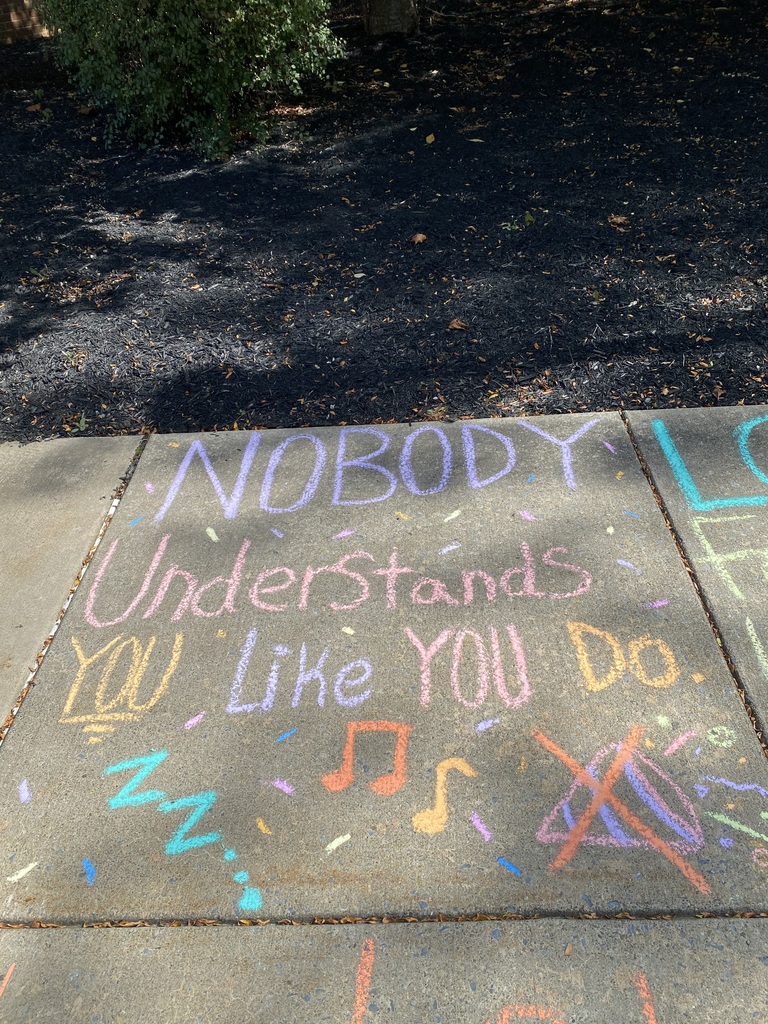 NOBODY
Understands
YOU Like YOU Do.
ZZ